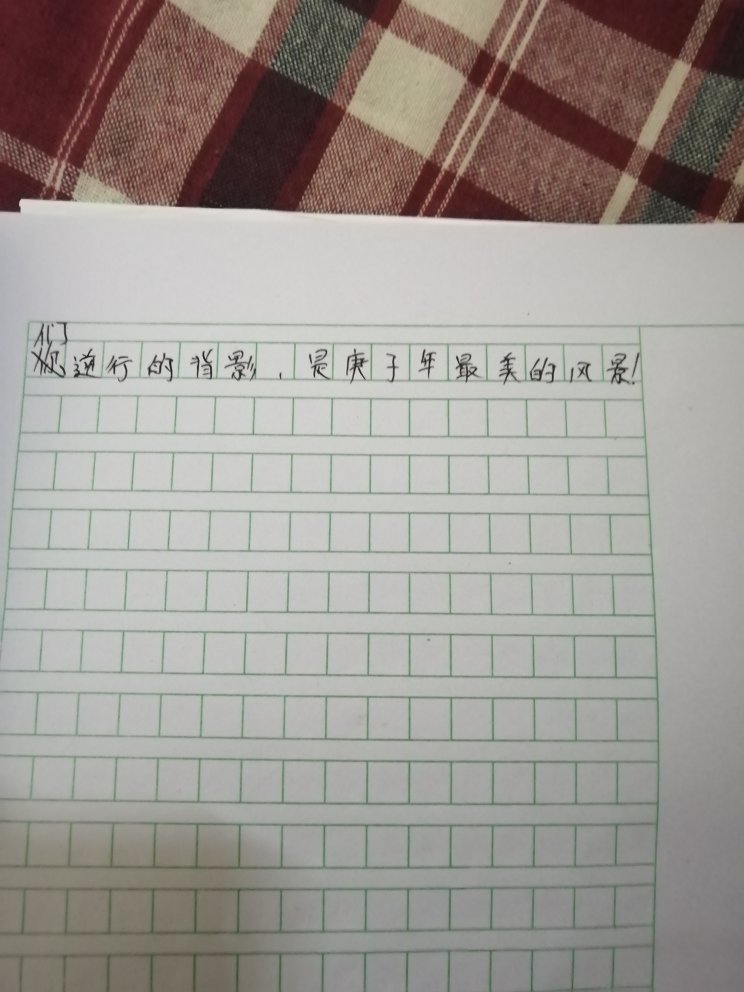 们
您逆行的背影，是庚子年最美的风景！